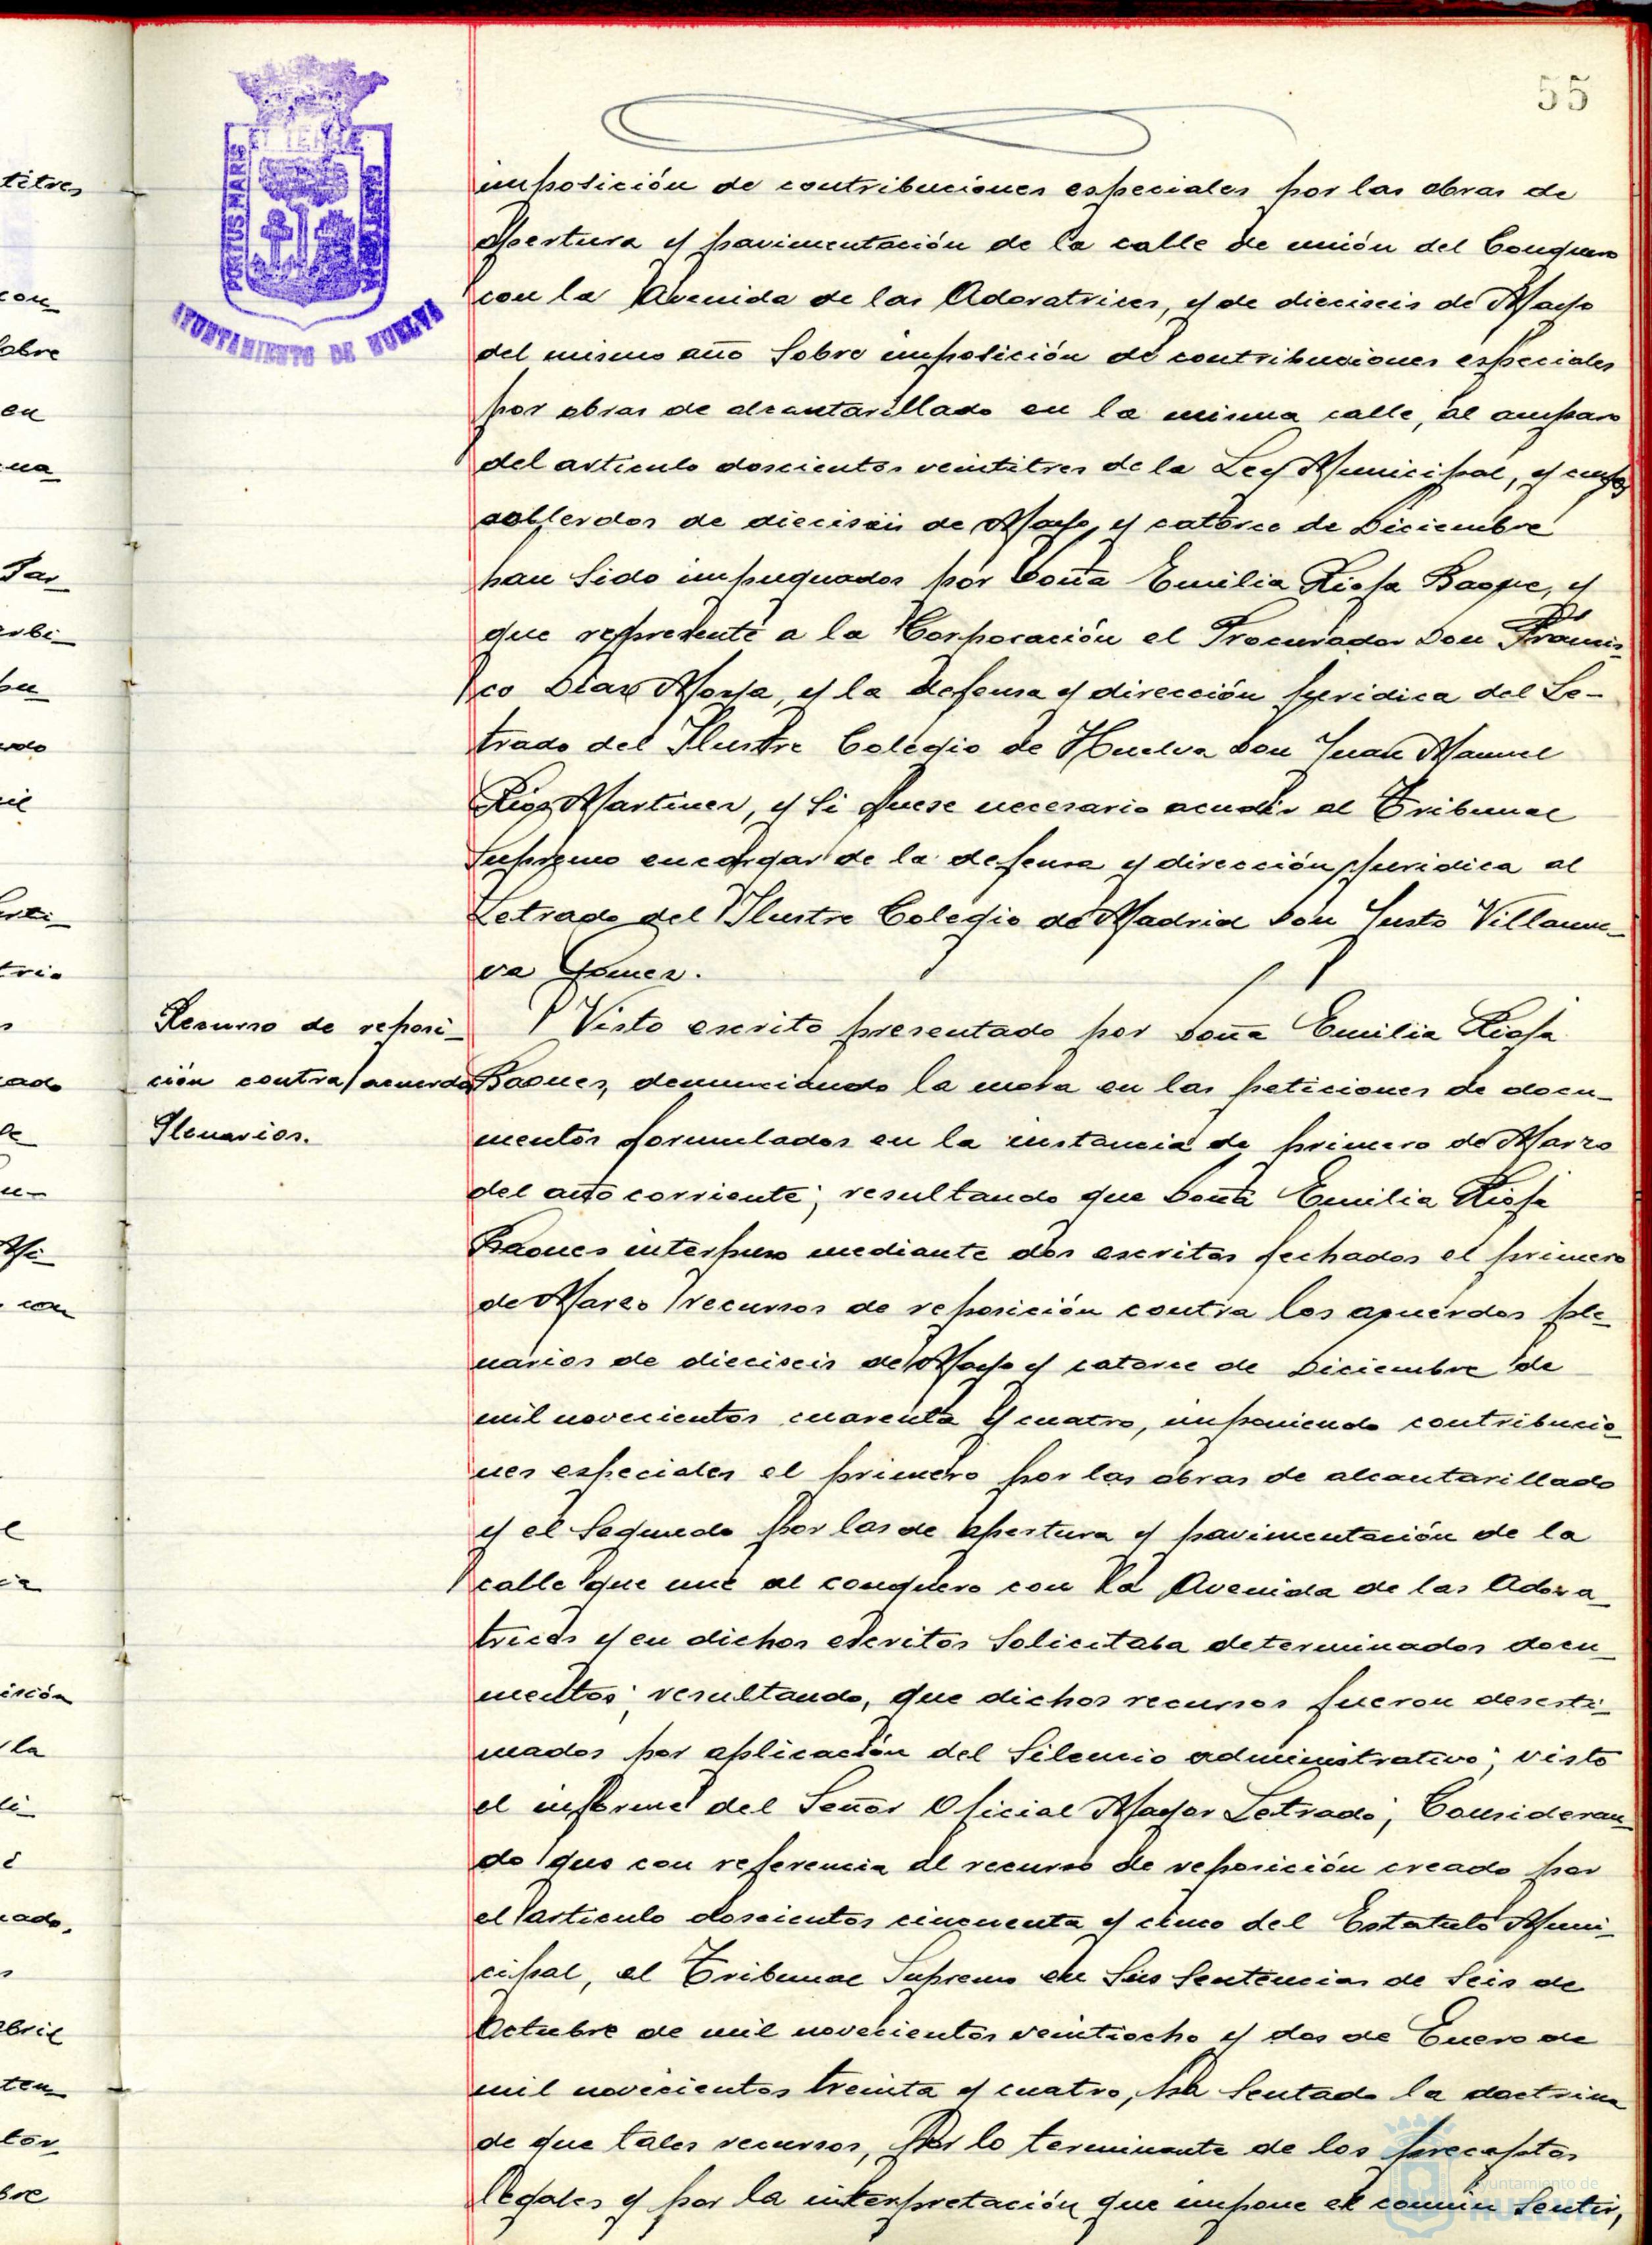 55
PORTUS MARIS
ET TERRAE
CUSTODIA
AYUNTAMIENTO DE HUELVA
imposición de contribuciones especiales por las obras de
apertura y pavimentación de la calle de unión del Conquero
con la Avenida de las Adoratrices, y de dieciseis de Mayo
del mismo año sobre imposición de contribuciones especiales
por obras de alcantarillado en la misma calle, al amparo
del articulo doscientos veintitres de la Ley Municipal, y cuyos
acuerdos de dieciseis de Mayo y catorce de Diciembre
han sido impugnados por Doña Emilia Rioja, y
que represente a la Corporación el Procurador Don Francis-
co Diaz Moya, y la defensa y dirección juridica del Le-
trado del Ilustre Colegio de Huelva Don Juan Manuel
Martinez, y si fuese necesario acudir al Tribunal
Supremo encargar de la defensa y dirección juridica al
Letrado del Ilustre Colegio de Madrid Don Justo Villanue-
va Gomez.
Recurso de reposi-
ción contra acuerdos
Plenarios.
Visto escrito presentado por Doña Emilia Rioja
Baones, denunciando la mora en las peticiones de docu-
mentos formulados en la instancia de primero de Marzo
del año corriente; resultando que Doña Emilia Rioja
Baones interpuso mediante dos escritos fechados el primero
de Marzo recursos de reposición contra los acuerdos ple-
narios de dieciseis de Mayo y catorce de Diciembre de
mil novecientos cuarenta y cuatro, imponiendo contribucio-
nes especiales el primero por las obras de alcantarillado
y el segundo por las de apertura y pavimentación de la
calle que une al conquero con la Avenida de las Adora-
trices y en dichos escritos solicitaba determinados docu-
mentos; resultando, que dichos recursos fueron desesti-
mados por aplicación del silencio administrativo; visto
el informe del Señor Oficial Mayor Letrado; Consideran-
do que con referencia al recurso de reposición creado por
el articulo doscientos cincuenta y cinco del Estatuto Muni-
cipal, el Tribunal Supremo en sus sentencias de seis de
Octubre de mil novecientos veintiocho y dos de Enero de
mil novecientos treinta y cuatro, ha sentado la doctrina
de que tales recursos, por lo terminante de los preceptos
legales y por la interpretación que impone el común sentir,
Ayuntamiento de
HUELVA